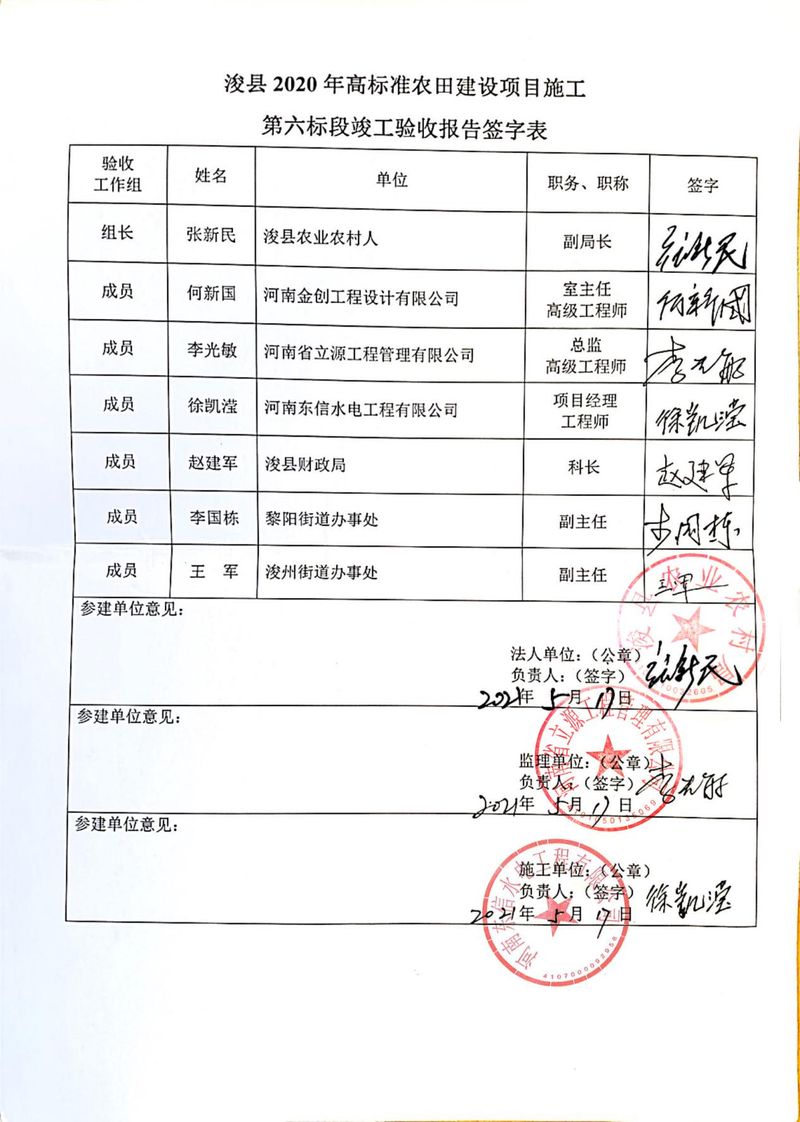 浚县 2020 年高标准农田建设项目施工
第六标段竣工验收报告签字表
验收
工作组 姓名 单位 职务、职称 签字
组长 张新民 浚县农业农村人 副局长 张新民
成员 何新国 河南金创工程设计有限公司 室主任
高级工程师 何新国
成员 李光敏 河南省立源工程管理有限公司 总监
高级工程师 李光敏
成员 徐凯滢 河南东信水电工程有限公司 项目经理
工程师 徐凯滢
成员 赵建军 浚县财政局 科长 赵建军
成员 李国栋 黎阳街道办事处 副主任
成员 王 军 浚州街道办事处 副主任 王军
参建单位意见：
法人单位：（公章）
负责人：（签字） 张新民
2021年 5月 17日
浚县农业农村局
参建单位意见：
监理单位：（公章）
负责人：（签字）
2021年 5月 17日
河南省立源工程管理有限公司
参建单位意见：
施工单位：（公章）
负责人：（签字） 徐凯滢
2021年 5月 17日
河南东信水电工程有限公司
4107000092958